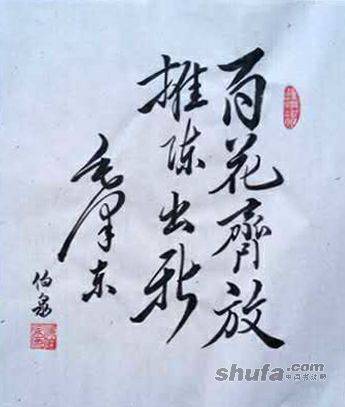 百花齊放
推陈出新
毛泽东
伯泉
shufa.com
中国书法网